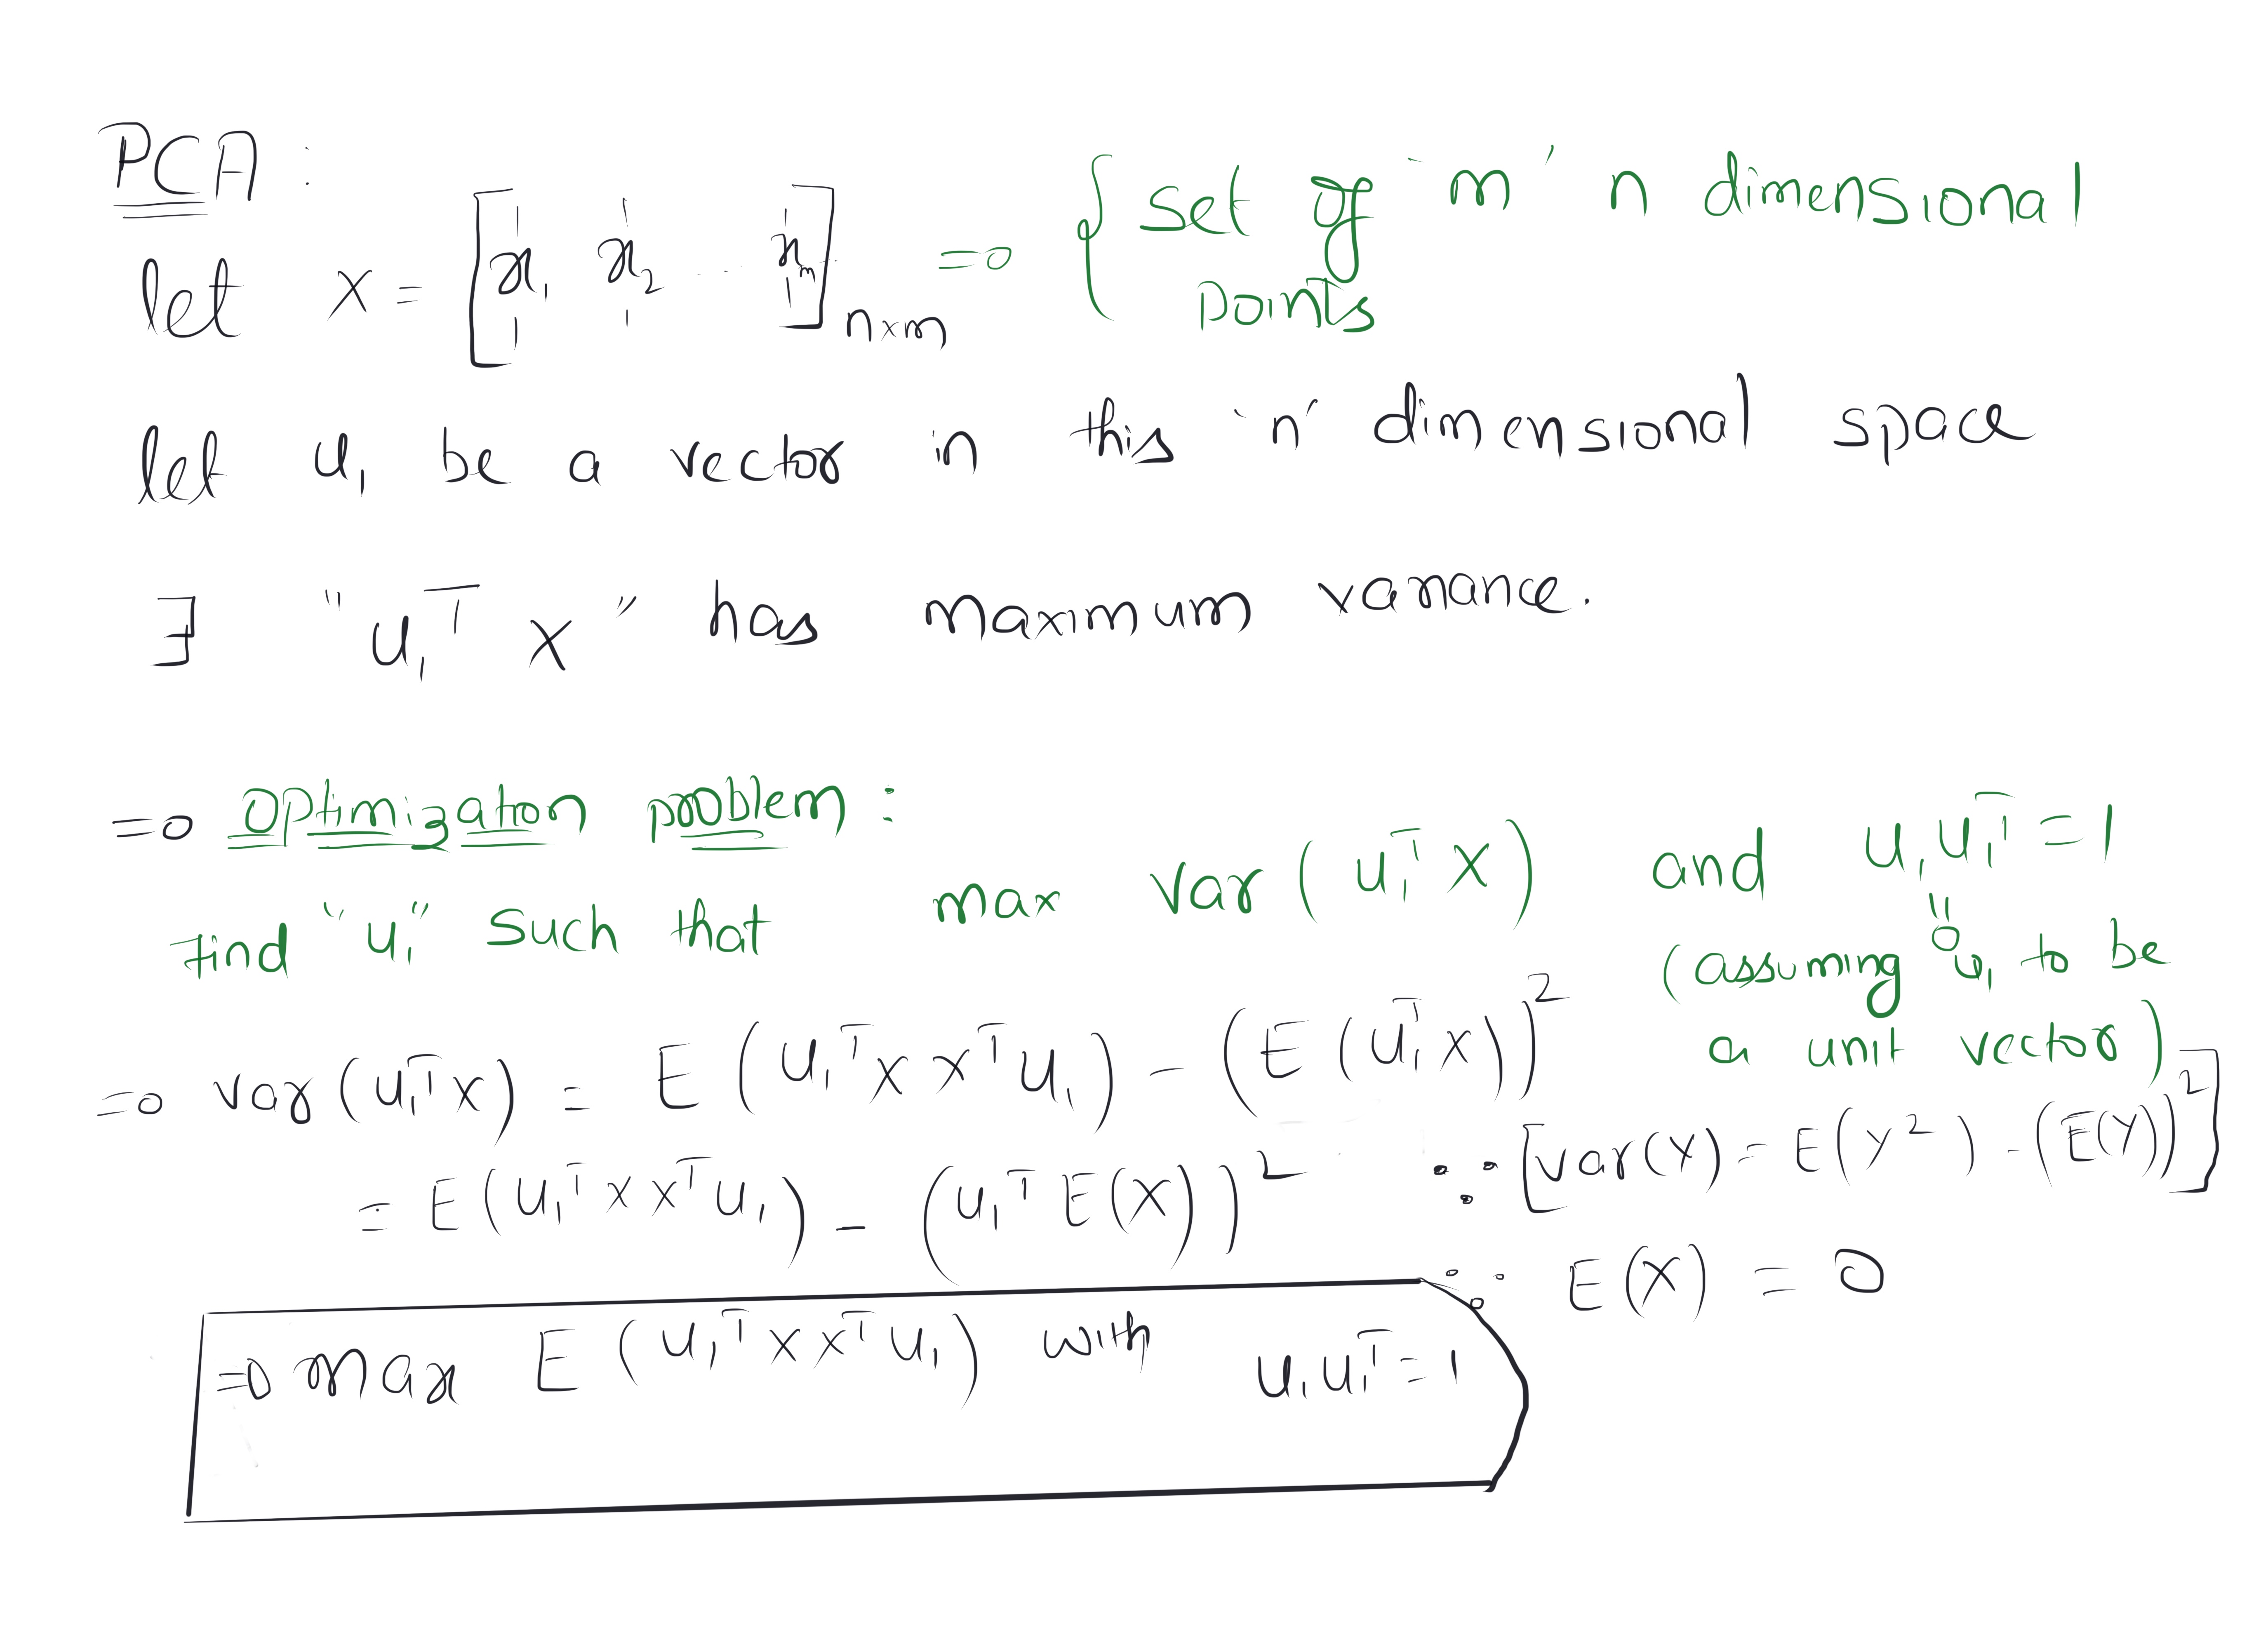 PCA :
let X = [ x₁ x₂ ... xₘ ]ₙₓₘ ⇒ { set of 'm' n dimensional
points
let u₁ be a vector in this 'n' dimensional space
∃ "u₁ᵀ X" has maximum variance.
⇒ Optimization problem :
Find "u₁" such that max Var(u₁ᵀX) and u₁u₁ᵀ = 1
(assuming u₁ to be
a unit vector)
⇒ Var(u₁ᵀX) = E(u₁ᵀXXᵀu₁) - (E(u₁ᵀX))²
= E(u₁ᵀXXᵀu₁) - (u₁ᵀE(X))² ∵ [Var(Y) = E(Y²) - (E(Y))²]
∵ E(X) = 0
⇒ max E(u₁ᵀXXᵀu₁) with u₁u₁ᵀ = 1